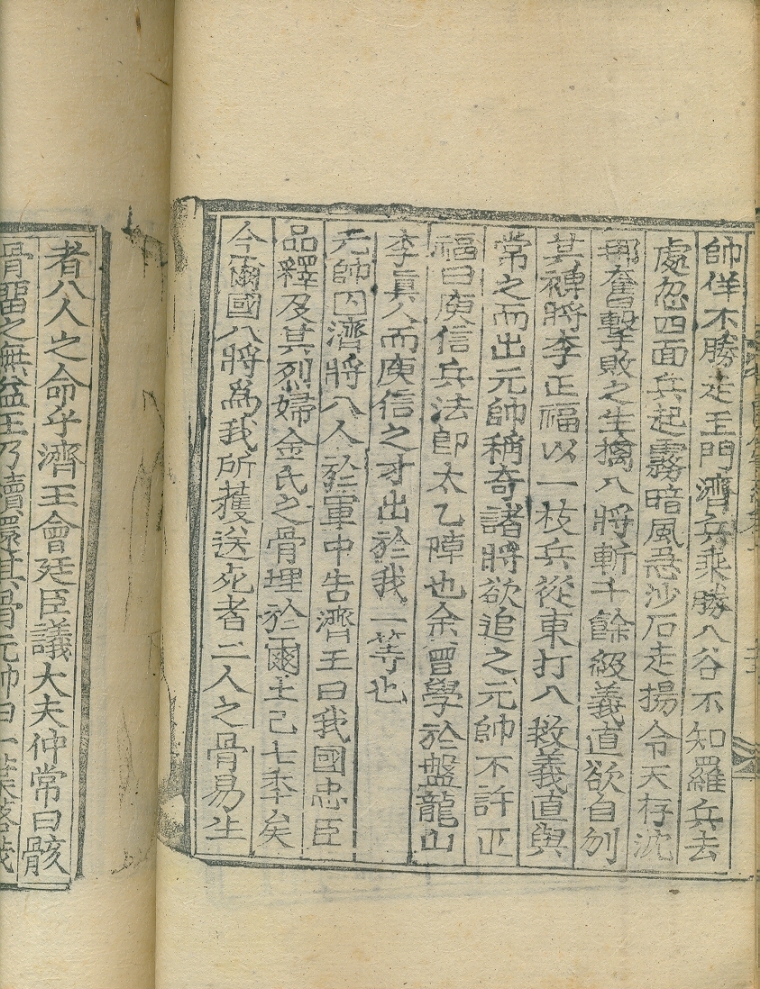 帥佯不勝走玉門濟兵乘勝入谷不知羅兵去
處忽四面兵起霧暗風急沙石走揚令天存沈
那奮擊敗之生擒八將斬千餘級義直欲自刎
其裨將李正福以一枝兵從東打入救義直與
常之而出元帥稱奇諸將欲追之元帥不許正
福曰庾信兵法卽太乙陣也余曾學於盤龍山
李眞人而庾信之才出於我一等也
元帥囚濟將八人於軍中告濟王曰我國忠臣
品釋及其烈婦金氏之骨埋於爾土已七秊矣
今爾國八將爲我所獲送死者二人之骨易生
者八人之命乎濟王會廷臣議大夫仲常曰骸
骨留之無益王乃櫝還其骨元帥曰一葉落